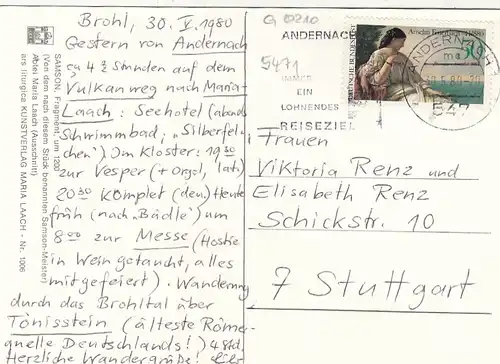 Brohl, 30. V. 1980
Gestern von Andernach
ca 4 ½ Stunden auf dem
Vulkanweg nach Maria-
Laach: Seehotel (abends
Schwimmbad, „Silberfel-
chen“). Im Kloster: 19 30
zur Vesper (+ Orgel, lat.)
20 30 Komplet (den.) Heute
früh (nach „Bädle“) um
8 00 zur Messe (Hostie
in Wein getaucht, alles
mitgefeiert). Wanderung
durch das Brohltal über
Tönisstein (älteste Römer-
quelle Deutschlands!) 4 Std.
Herzliche Wandergrüße! Eure
SAMSON, Fragment, um 1200
(Von dem nach diesem Stück benannten Samson-Meister)
Abtei Maria Laach (Ausschnitt)
ars liturgica KUNSTVERLAG MARIA LAACH - Nr. 1006
G 0210
5471
ANDERNACH
IMMER
EIN
LOHNENDES
REISEZIEL
Anselm Feuerbach
50
DEUTSCHE BUNDESPOST
ANDERNACH
ma
547
Frauen
Viktoria Renz und
Elisabeth Renz
Schickstr. 10
7 Stuttgart